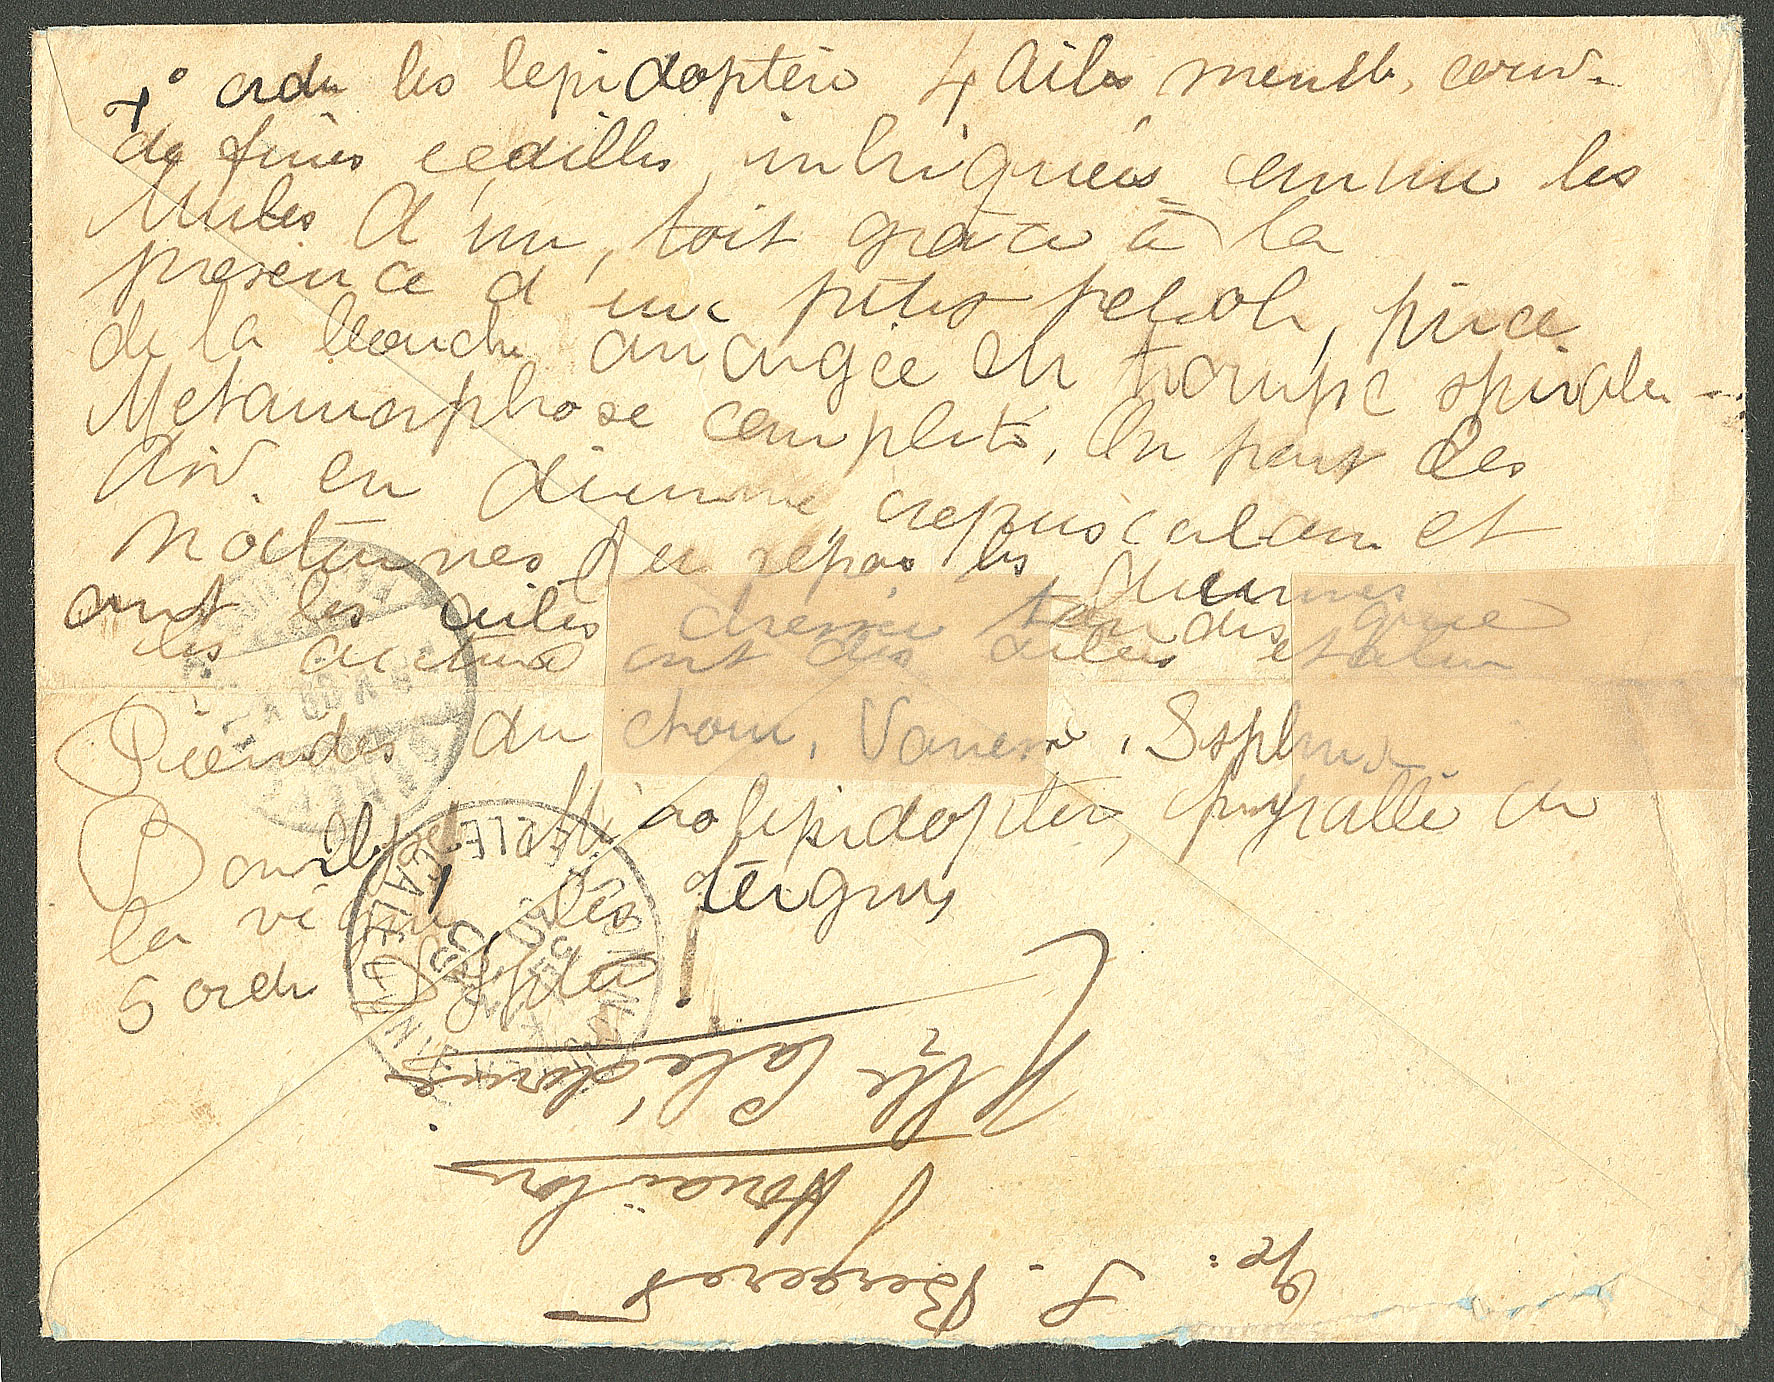 4° ordre les lepidoptère 4 Ailes memb. couv.
de fines ecailles, imbriquées comme les
tuiles d'un toit grace à la
presence d'un petits petiole, pièce
de la bouche arrangée en trompe spirale
Metamorphose complete. On peut les
div. en diurne, crepusculaire et
nocturnes Au repos les diurnes
ont les ailes dressée tandis que
les autres ont des ailes etalées
Pierides du chou, Vanesse, Sephinx
Bombyx Microlepidoptère, pyralle de
la vigne, les teignes
5 ordre
Nlle Calédonie
Houaïlou
L. Bergeret